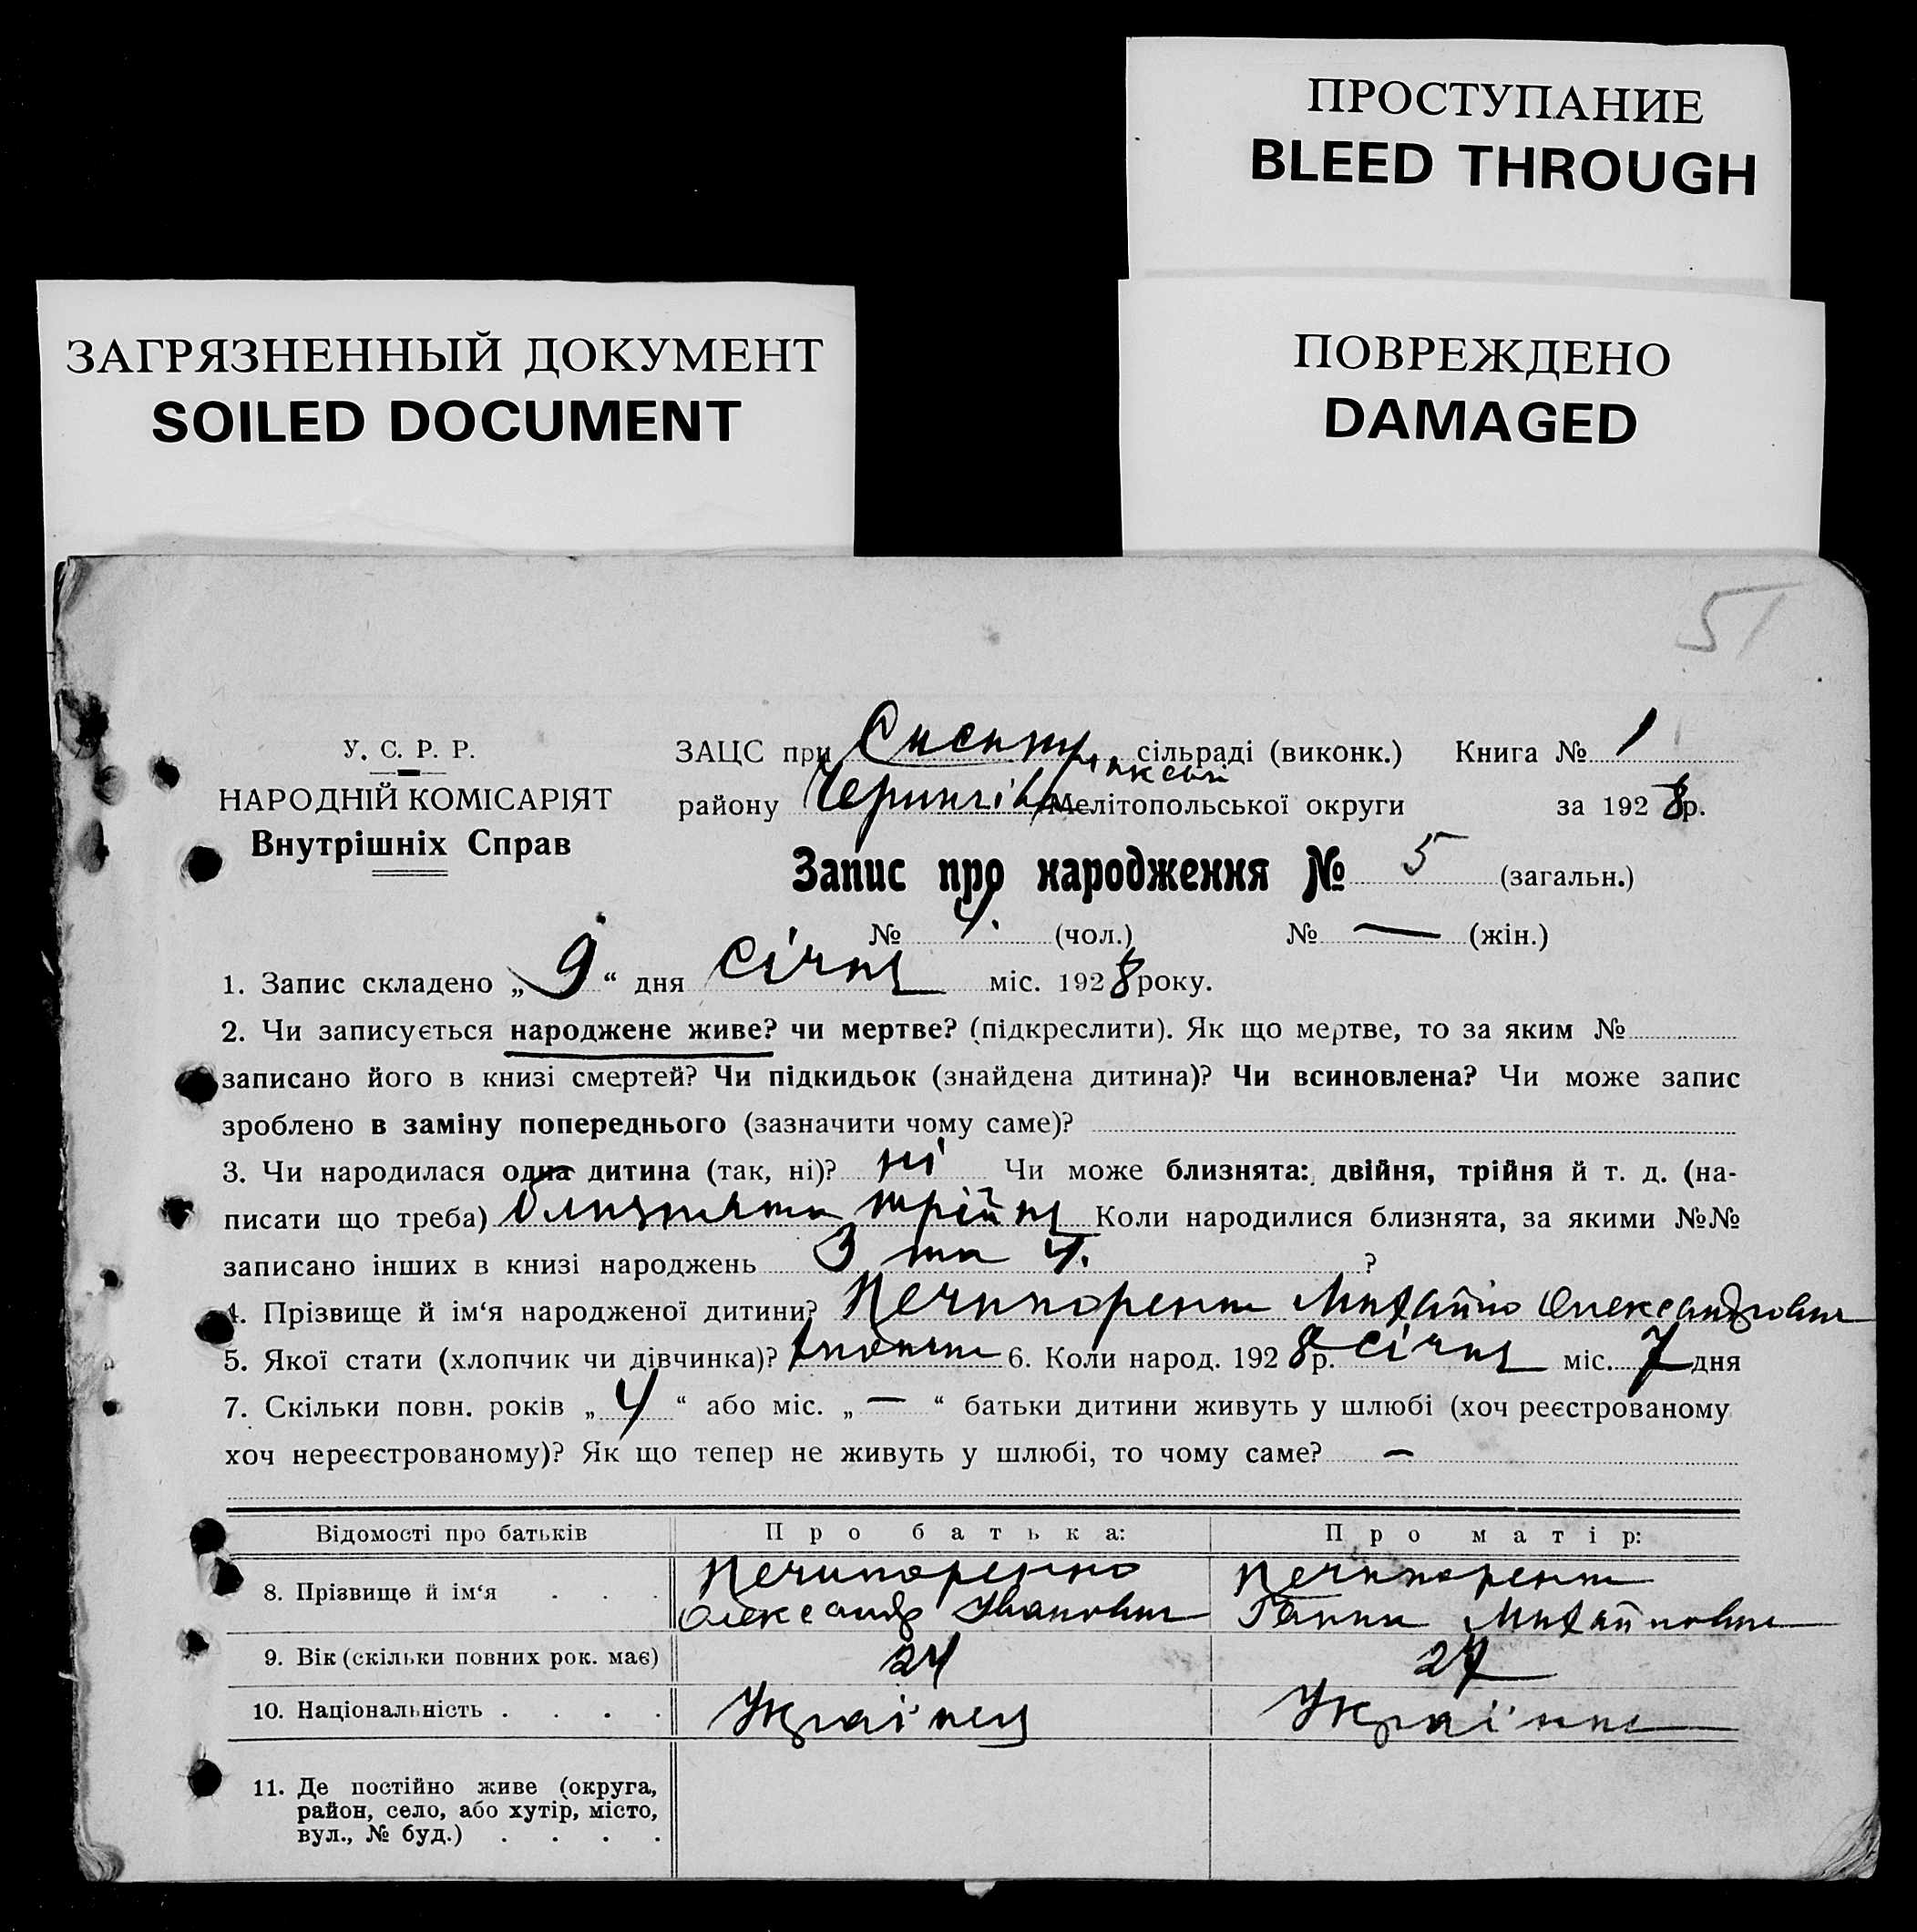 ПРОСТУПАНИЕ
BLEED THROUGH
ЗАГРЯЗНЕННЫЙ ДОКУМЕНТ
SOILED DOCUMENT
ПОВРЕЖДЕНО
DAMAGED
51
У. С. Р. Р.
НАРОДНІЙ КОМІСАРІЯТ
Внутрішніх Справ
ЗАЦС при сільраді (виконк.) Книга № 1
району Чернигів Мелітопольської округи за 1928 р.
Запис про народження № 5 (загальн.)
№ 4. (чол.) № — (жін.)
1. Запис складено „9“ дня січня міс. 1928 року.
2. Чи записується народжене живе? чи мертве? (підкреслити). Як що мертве, то за яким №
записано його в книзі смертей? Чи підкидьок (знайдена дитина)? Чи всиновлена? Чи може запис
зроблено в заміну попереднього (зазначити чому саме)?
3. Чи народилася одна дитина (так, ні)? ні Чи може близнята: двійня, трійня й т. д. (на-
писати що треба) близнята трійня Коли народилися близнята, за якими №№
записано інших в книзі народжень 3 та 4. ?
4. Прізвище й ім‘я народженої дитини? Нечипоренко Михайло Олександрович
5. Якої стати (хлопчик чи дівчинка)? 6. Коли народ. 1928 р. січня міс. 7 дня
7. Скільки повн. років „4“ або міс. „—“ батьки дитини живуть у шлюбі (хоч реєстрованому
хоч нереєстрованому)? Як що тепер не живуть у шлюбі, то чому саме? —
Відомості про батьків Про батька: Про матір:
8. Прізвище й ім‘я . . . Нечипоренко Нечипоренко
Олександр Іванович Ганна Михайловна
9. Вік (скільки повних рок. має) 24 24
10. Національність . . . . Українец Українка
11. Де постійно живе (округа,
район, село, або хутір, місто,
вул., № буд.) . . . .